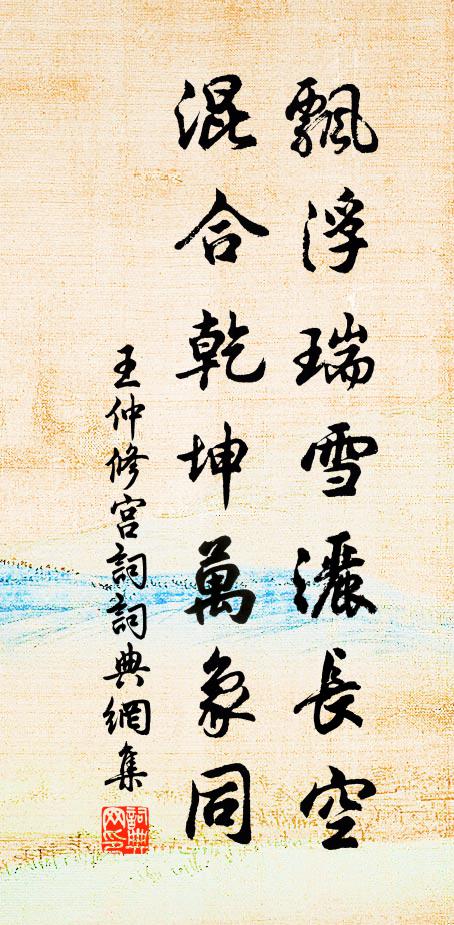 飄浮瑞雪灑長空
混合乾坤萬象同
王仲修宮詞詞典網集